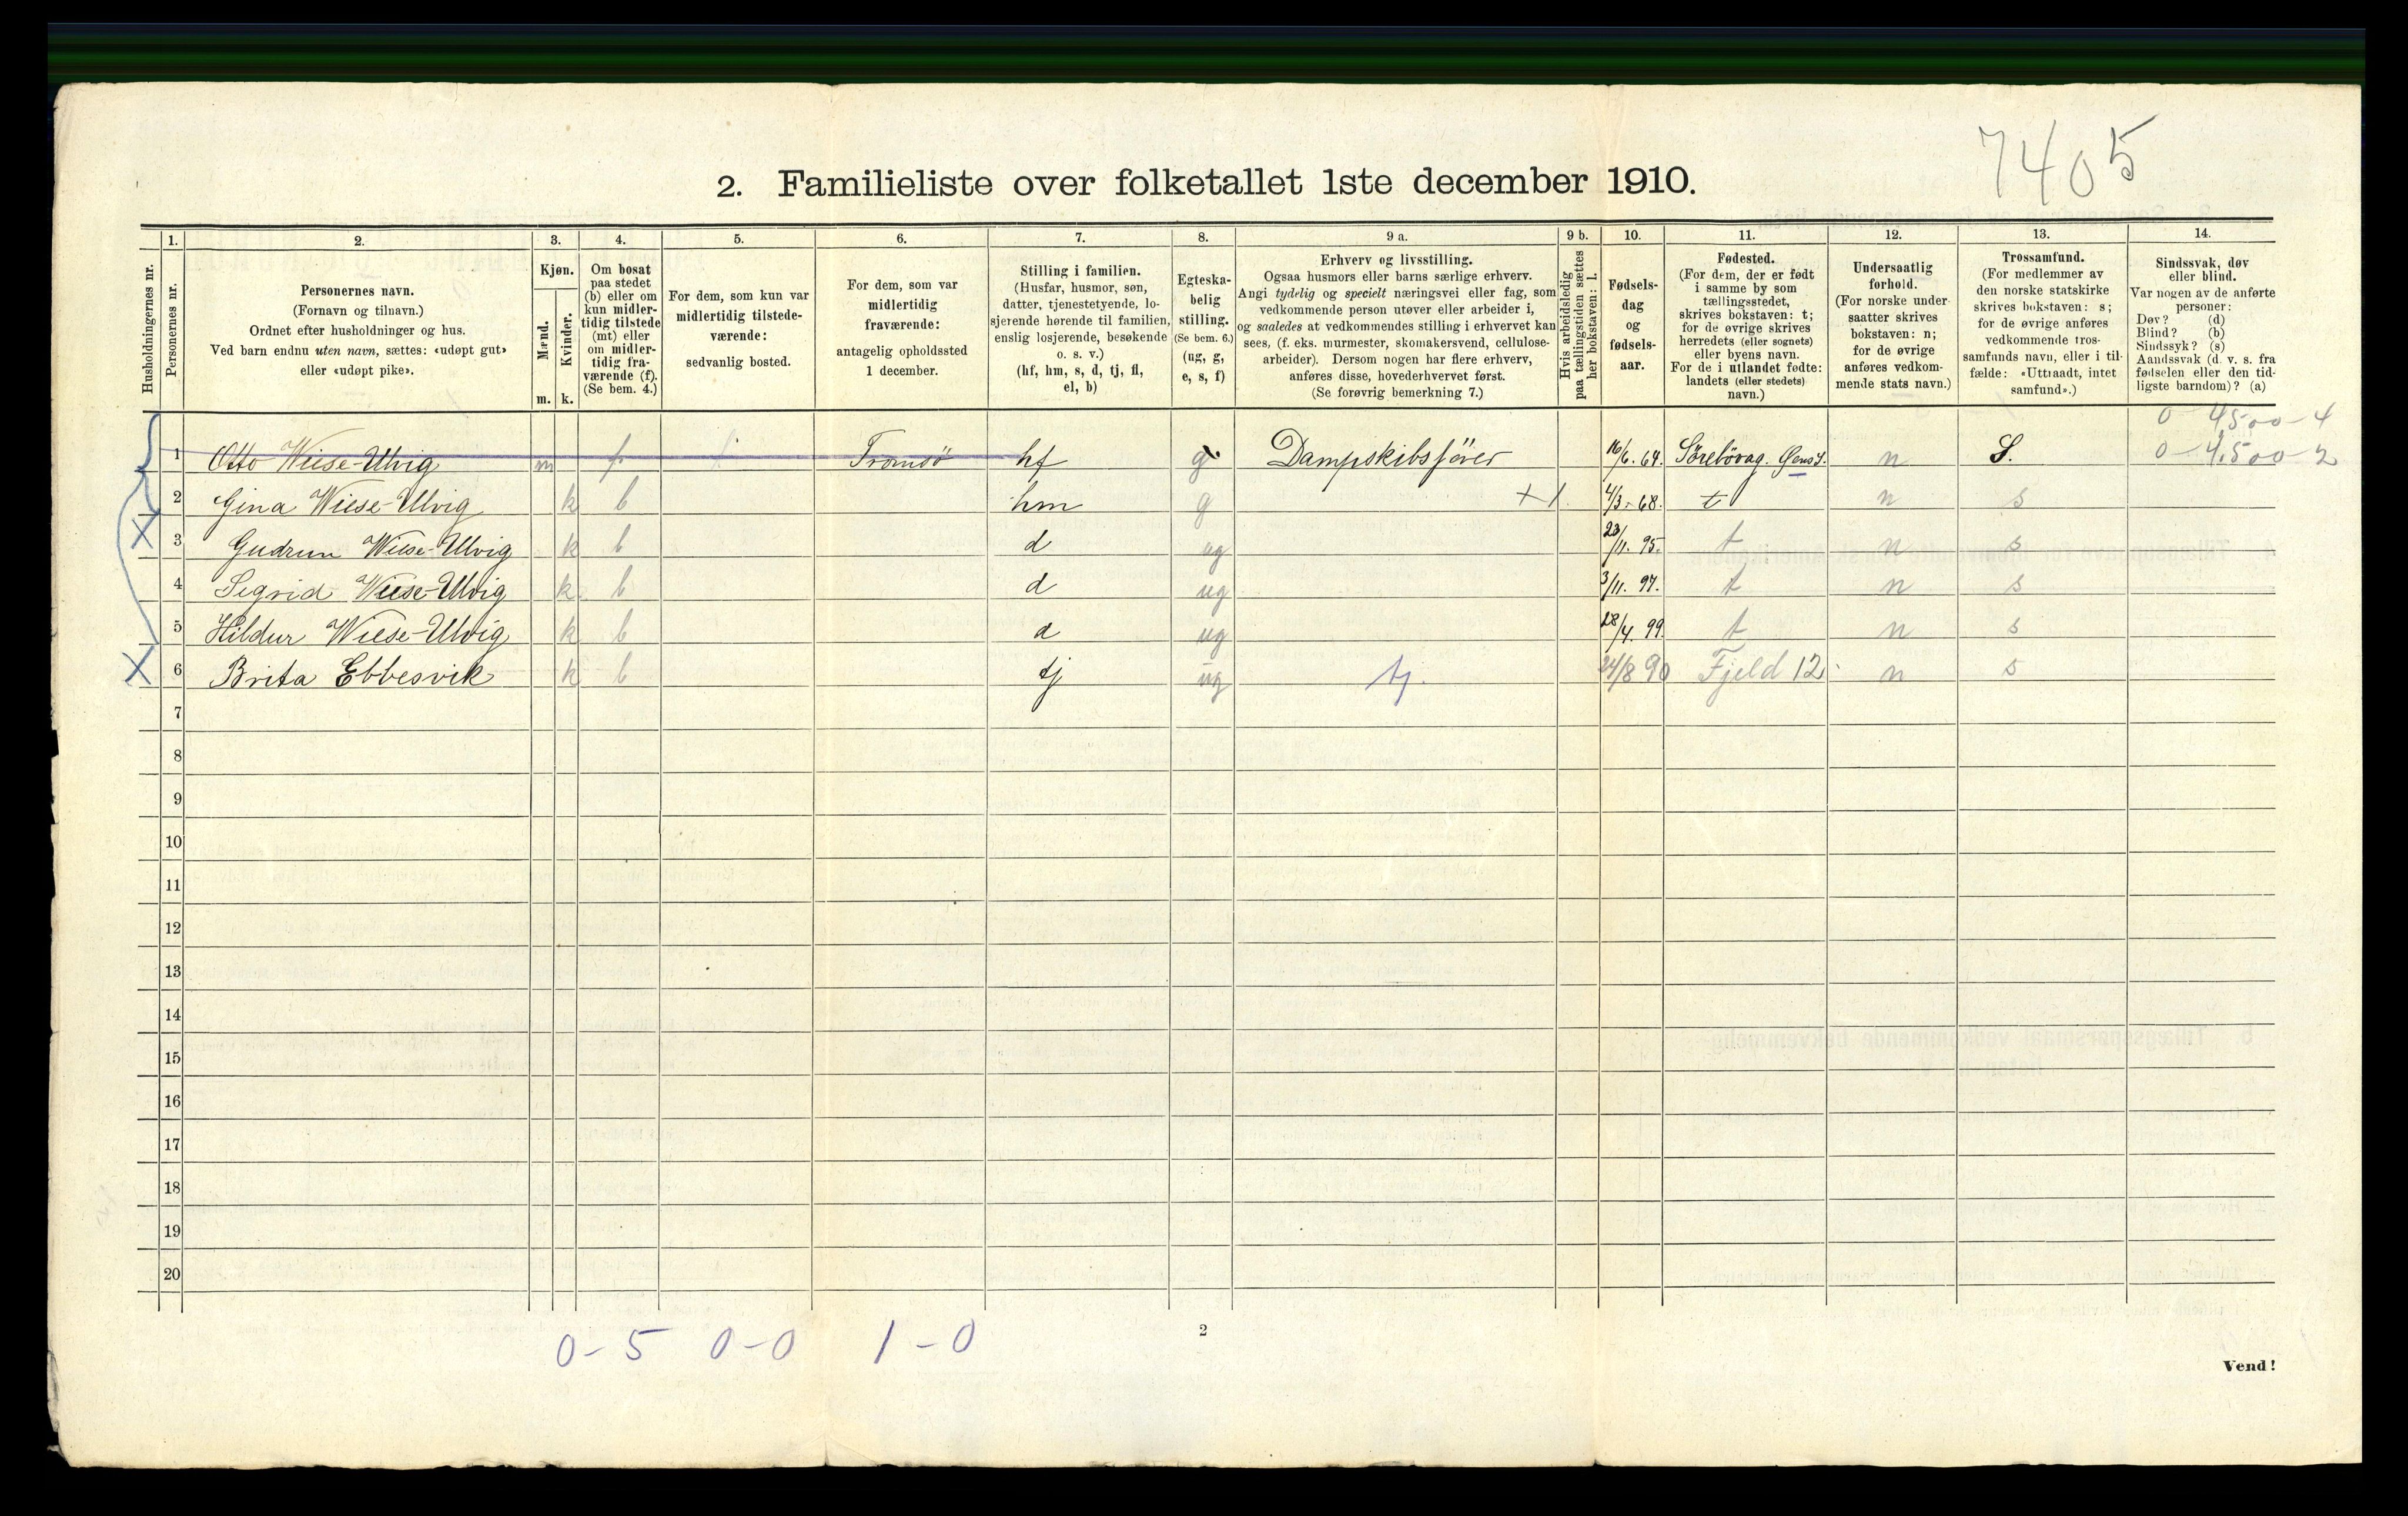 7405
2. Familieliste over folketallet 1ste december 1910.
Husholdningernes nr.
1.
Personernes nr.
2.
Personernes navn.
(Fornavn og tilnavn.)
Ordnet efter husholdninger og hus.
Ved barn endnu uten navn, sættes: «udøpt gut»
eller «udøpt pike».
3.
Kjøn.
Mænd.
Kvinder.
m. k.
4.
Om bosat
paa stedet
(b) eller om
kun midler-
tidig tilstede
(mt) eller
om midler-
tidig fra-
værende (f).
(Se bem. 4.)
5.
For dem, som kun var
midlertidig tilstede-
værende:
sedvanlig bosted.
6.
For dem, som var
midlertidig
fraværende:
antagelig opholdssted
1 december.
7.
Stilling i familien.
(Husfar, husmor, søn,
datter, tjenestetyende, lo-
sjerende hørende til familien,
enslig losjerende, besøkende
o. s. v.)
(hf, hm, s, d, tj, fl,
el, b)
8.
Egteska-
belig
stilling.
(Se bem. 6.)
(ug, g,
e, s, f)
9 a.
Erhverv og livsstilling.
Ogsaa husmors eller barns særlige erhverv.
Angi tydelig og specielt næringsvei eller fag, som
vedkommende person utøver eller arbeider i,
og saaledes at vedkommendes stilling i erhvervet kan
sees, (f. eks. murmester, skomakersvend, cellulose-
arbeider). Dersom nogen har flere erhverv,
anføres disse, hovederhvervet først.
(Se forøvrig bemerkning 7.)
9 b.
Hvis arbeidsledig
paa tællingstiden sættes
her bokstaven: l.
10.
Fødsels-
dag
og
fødsels-
aar.
11.
Fødested.
(For dem, der er født
i samme by som
tællingsstedet,
skrives bokstaven: t;
for de øvrige skrives
herredets (eller sognets)
eller byens navn.
For de i utlandet fødte:
landets (eller stedets)
navn.)
12.
Undersaatlig
forhold.
(For norske under-
saatter skrives
bokstaven: n;
for de øvrige
anføres vedkom-
mende stats navn.)
13.
Trossamfund.
(For medlemmer av
den norske statskirke
skrives bokstaven: s;
for de øvrige anføres
vedkommende tros-
samfunds navn, eller i til-
fælde: «Uttraadt, intet
samfund».)
14.
Sindssvak, døv
eller blind.
Var nogen av de anførte
personer:
Døv? (d)
Blind? (b)
Sindssyk? (s)
Aandssvak (d. v. s. fra
fødselen eller den tid-
ligste barndom)? (a)
0 - 4500 - 4
1 Otto Wiese-Ulvig m f Tromsö hf g Dampskibsförer 16/6. 64. Sörebövag. S. 0 - 4,500 - 2
n
2 Gina Wiese-Ulvig k b hm g +1 4/3 - 68. t n s
3 Gudrun Wiese-Ulvig k b d ug 23/11. 95. t n s
4 Sigrid Wiese-Ulvig k b d ug 3/11. 97. t n s
5 Hildur Wiese-Ulvig k b d ug 28/4. 99. t n s
X 6 Brita Ebbesvik k b tj ug tj. 24/8 90 Fjeld 12 n s
7
8
9
10
11
12
13
14
15
16
17
18
19
20
0 - 5 0 - 0 1 - 0
2
Vend!